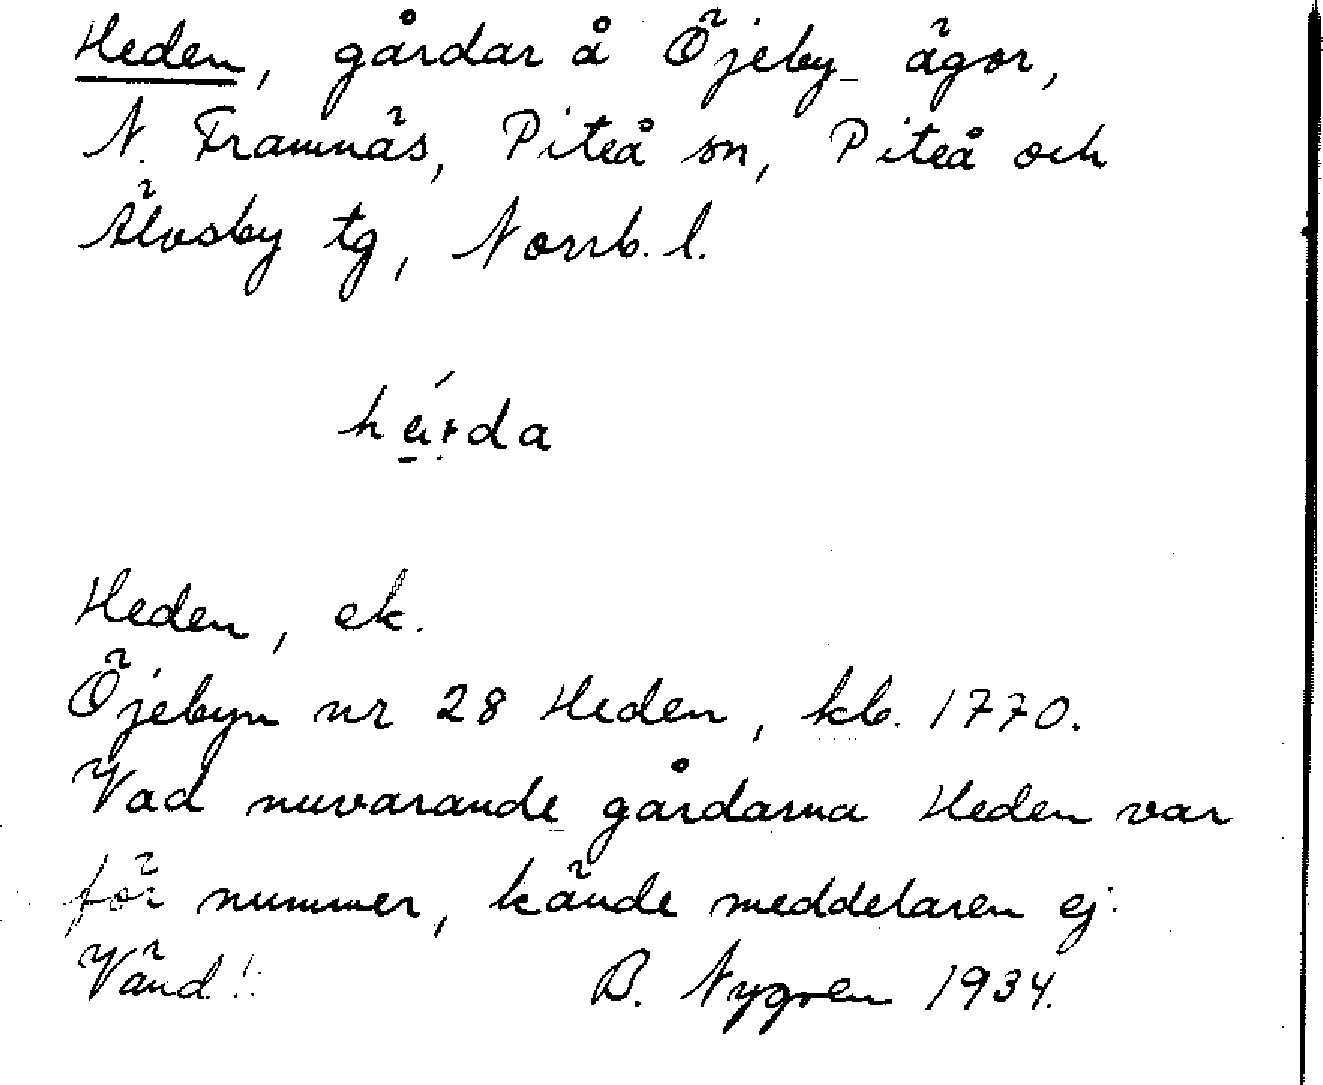 Heden, gårdar å Öjeby ägor,
N. Framnäs, Piteå sn, Piteå och
Älvsby tg, Norrb. l.
Heden, ek.
Öjebyn nr 28 Heden, kb. 1770.
Vad nuvarande gårdarna Heden var
för nummer, kände meddelaren ej.
Vänd!
B. Nygren 1934.